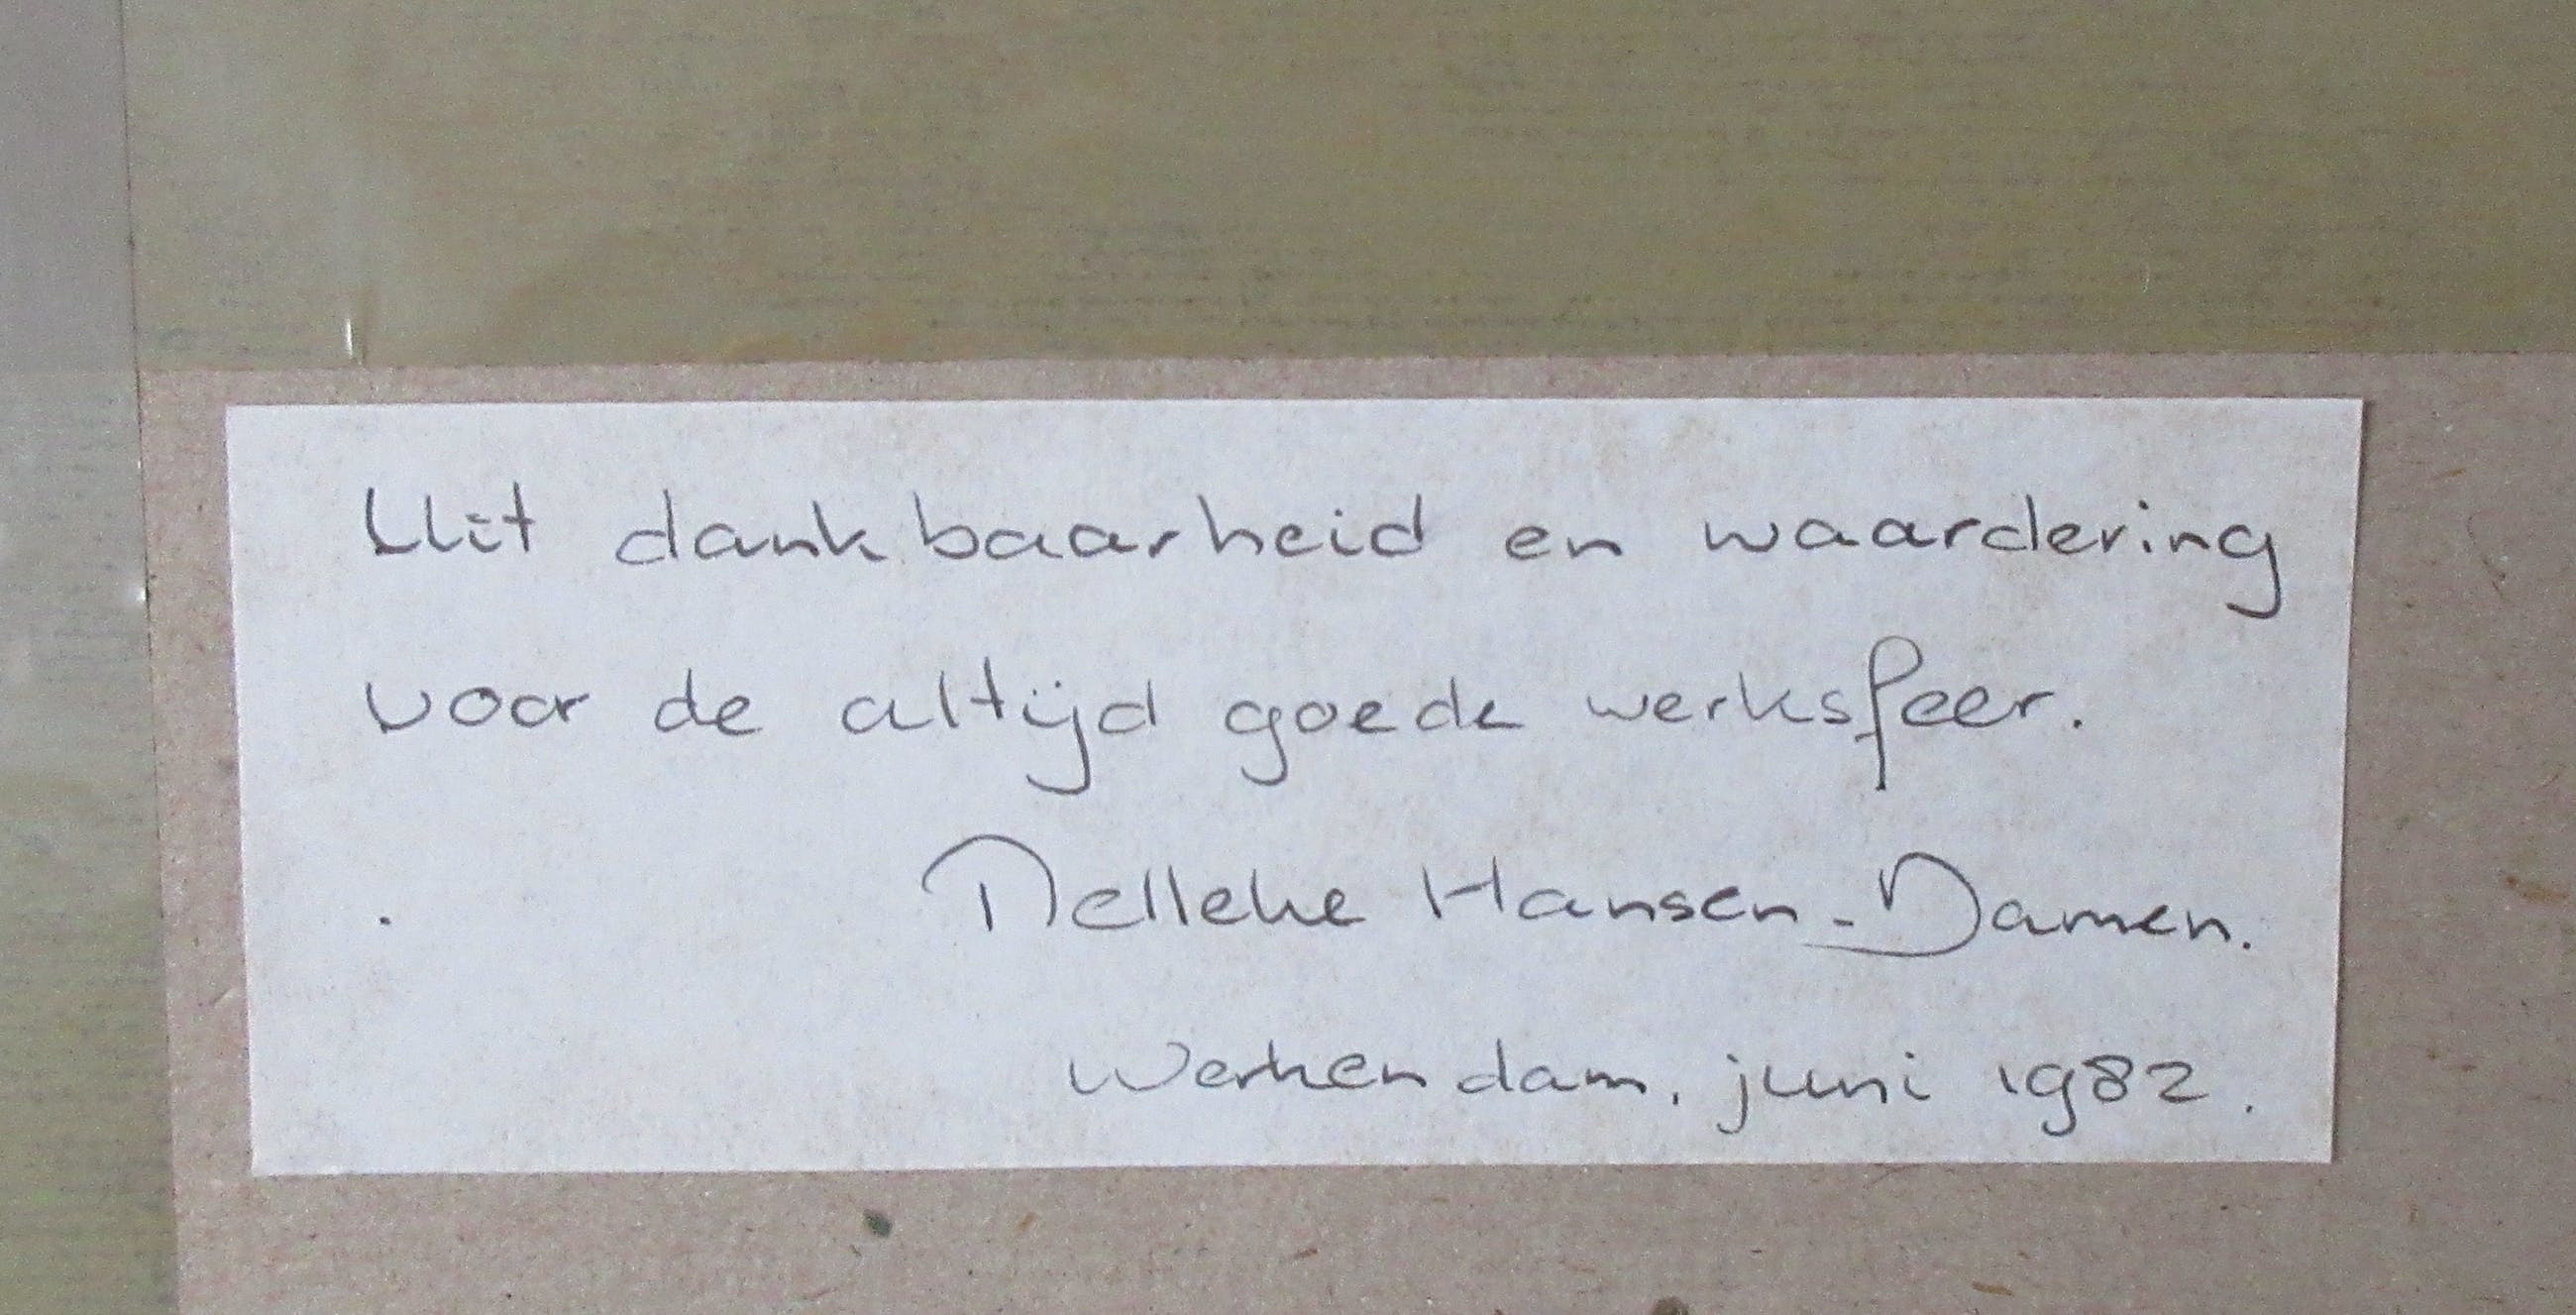 Uit dankbaarheid en waardering
voor de altijd goede werksfeer.
Nelleke Hansen-Damen.
Werkendam, juni 1982.